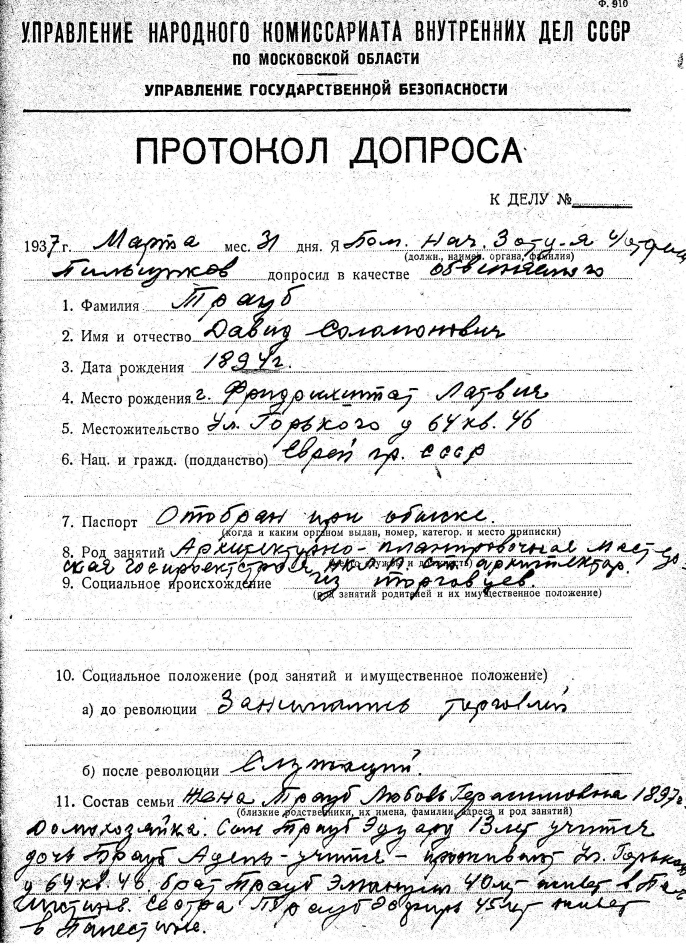 Ф. 910
УПРАВЛЕНИЕ НАРОДНОГО КОМИССАРИАТА ВНУТРЕННИХ ДЕЛ СССР
ПО МОСКОВСКОЙ ОБЛАСТИ
УПРАВЛЕНИЕ ГОСУДАРСТВЕННОЙ БЕЗОПАСНОСТИ
ПРОТОКОЛ ДОПРОСА
К ДЕЛУ №
1937 г. Марта мес. 31 дня. Я Пом. Нач. 3 отд-я 4 отдела
(должн., наимен. органа, фамилия)
допросил в качестве обвиняемого
1. Фамилия Трауб
2. Имя и отчество Давид Соломонович
3. Дата рождения 1894 г.
4. Место рождения г. Фридрихштат Латвия
5. Местожительство Ул. Горького д 64 кв. 46
6. Нац. и гражд. (подданство) Еврей гр. СССР
7. Паспорт Отобран при обыске.
(когда и каким органом выдан, номер, категор. и место приписки)
8. Род занятий Архитектурно-планировочная мастер-
ская архитектор.
9. Социальное происхождение из торговцев.
(род занятий родителей и их имущественное положение)
10. Социальное положение (род занятий и имущественное положение)
а) до революции Занимались торговлей
б) после революции Служащий.
11. Состав семьи Жена Трауб Любовь Герасимовна 1897 г.
(близкие родственники, их имена, фамилии, адреса и род занятий)
Домохозяйка. Сын Трауб Эдуард 13 лет учится
дочь Трауб Адель - учится - проживают Ул. Горького
д 64 кв. 46. брат Трауб Эммануил 40 лет живет в Пале-
стине. Сестра Трауб Эсфирь 45 лет живет
в Палестине.